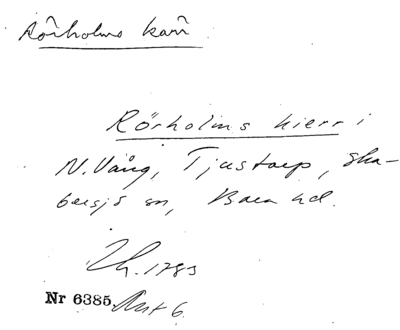 Rörholms kärr
Rörholms kierr i
N. Vång, Tjustorp, Ska-
bersjö sn, Bara hd.
1783
Nr 6385. Akt 6.